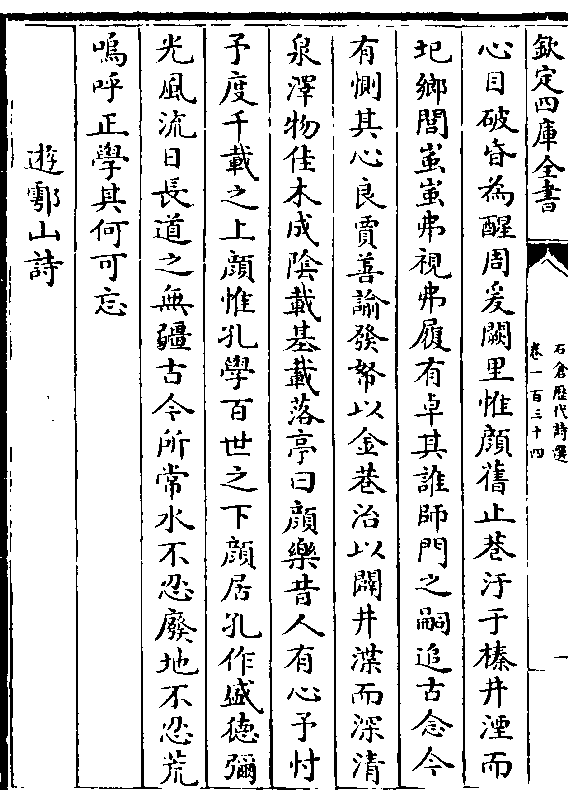 欽定四庫全書
石倉歴代詩選
卷一百三十四
心目破昏為醒周爰闕里惟顔舊止巷汙于榛井湮而
圮鄉閭蚩蚩弗視弗履有卓其誰師門之嗣追古念今
有惻其心良賈善諭發帑以金巷治以闢井渫而深清
泉澤物佳木成陰載基載落亭曰顔樂昔人有心予忖
予度千載之上顔惟孔學百世之下顔居孔作盛徳彌
光風流日長道之無疆古今所常水不忍廢地不忍荒
嗚呼正學其何可忘
遊鄠山詩